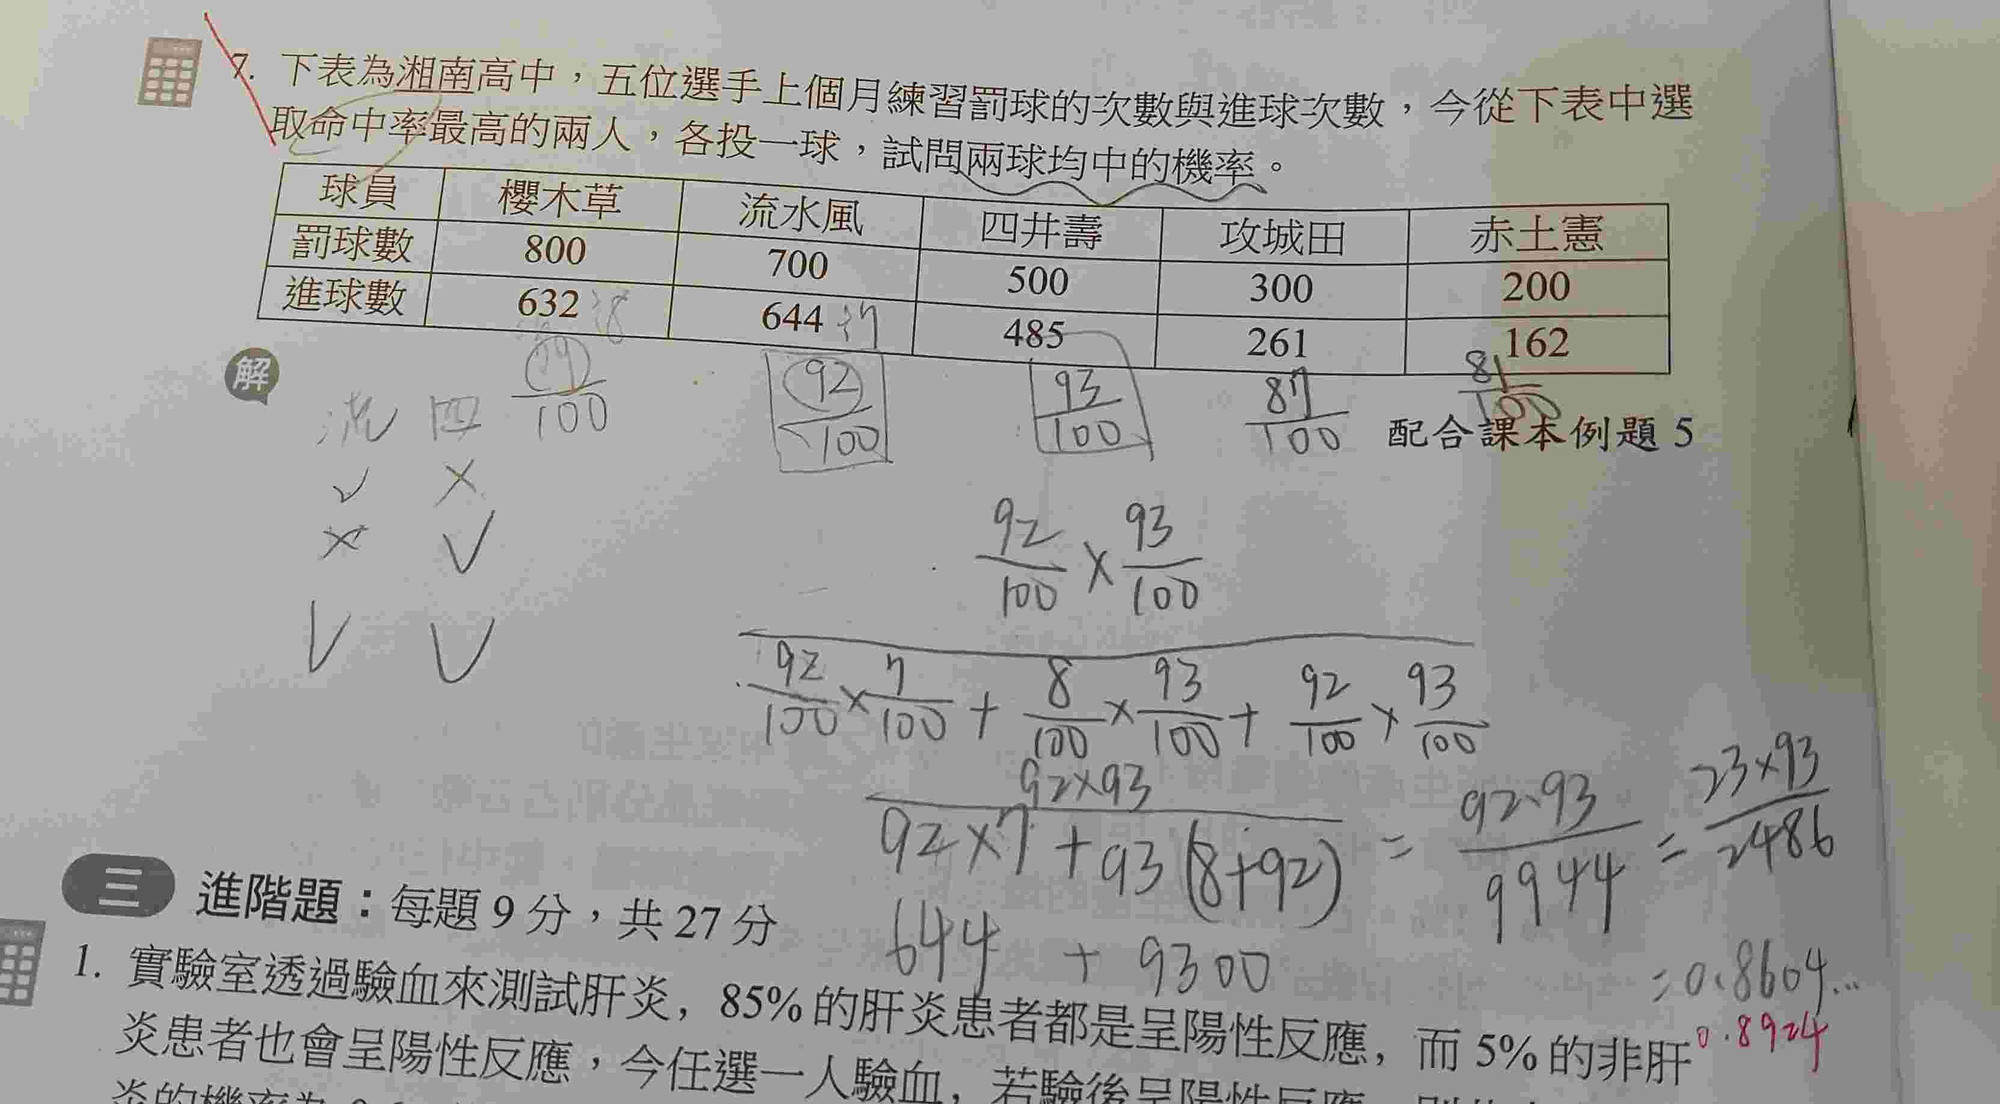 7. 下表為湘南高中，五位選手上個月練習罰球的次數與進球次數，今從下表中選
取命中率最高的兩人，各投一球，試問兩球均中的機率。
球員 櫻木草 流水風 四井壽 攻城田 赤土憲
罰球數 800 700 500 300 200
進球數 632 644 485 261 162
解
79/100 92/100 93/100 87/100 81/100
配合課本例題 5
流 四
✓ ×
× ✓
✓ ✓
92/100 × 93/100
92/100 × 7/100 + 8/100 × 93/100 + 92/100 × 93/100
92×93
92×7 + 93(8+92) = 92×93/9944 = 23×93/2486
644 + 9300
=0.8604...
0.8924
三 進階題：每題 9 分，共 27 分
1. 實驗室透過驗血來測試肝炎，85% 的肝炎患者都是呈陽性反應，而 5% 的非肝
炎患者也會呈陽性反應，今任選一人驗血，若驗後呈陽性反應